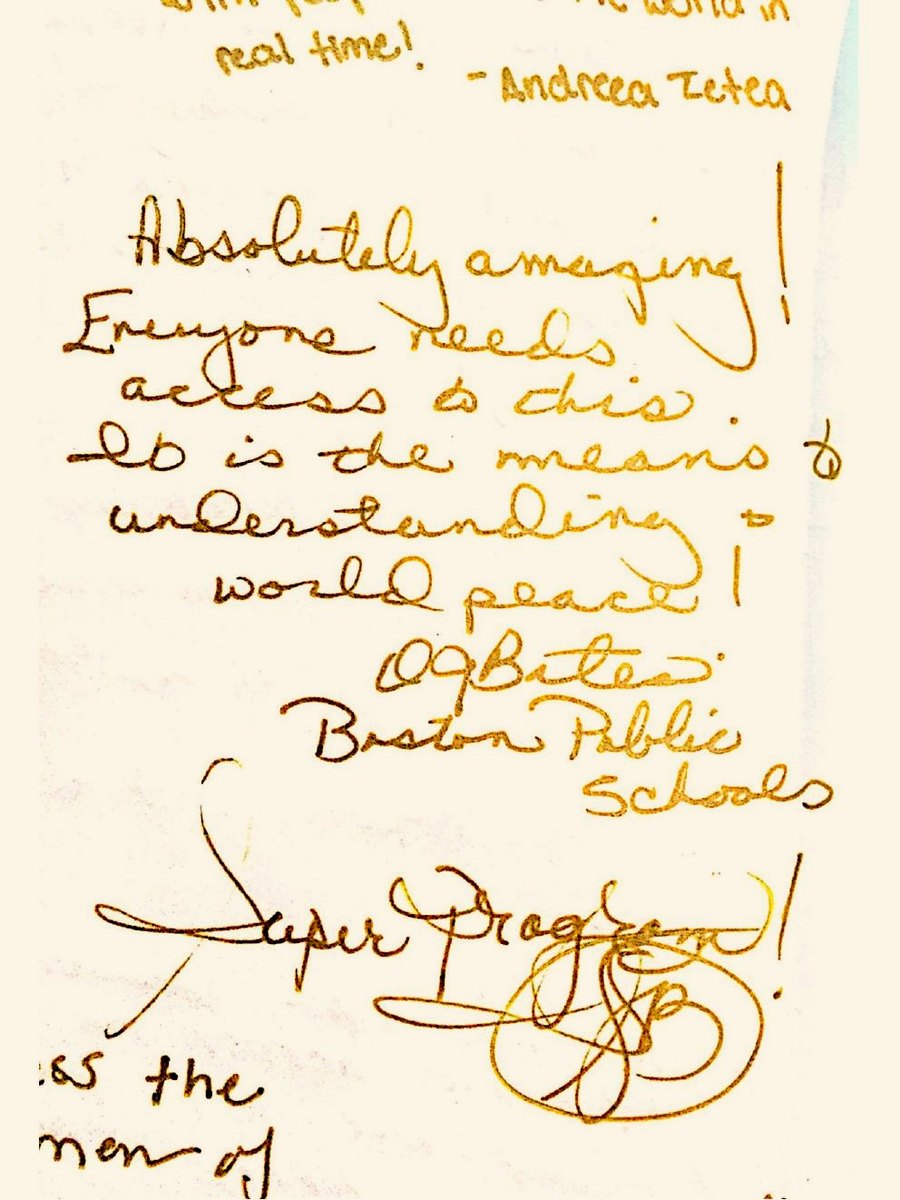 world in
real time!
- Andreea Zetea
Absolutely amazing!
Everyone needs
access to this.
It is the means to
understanding &
world peace!
Boston Public
Schools
Super Program!
the
of